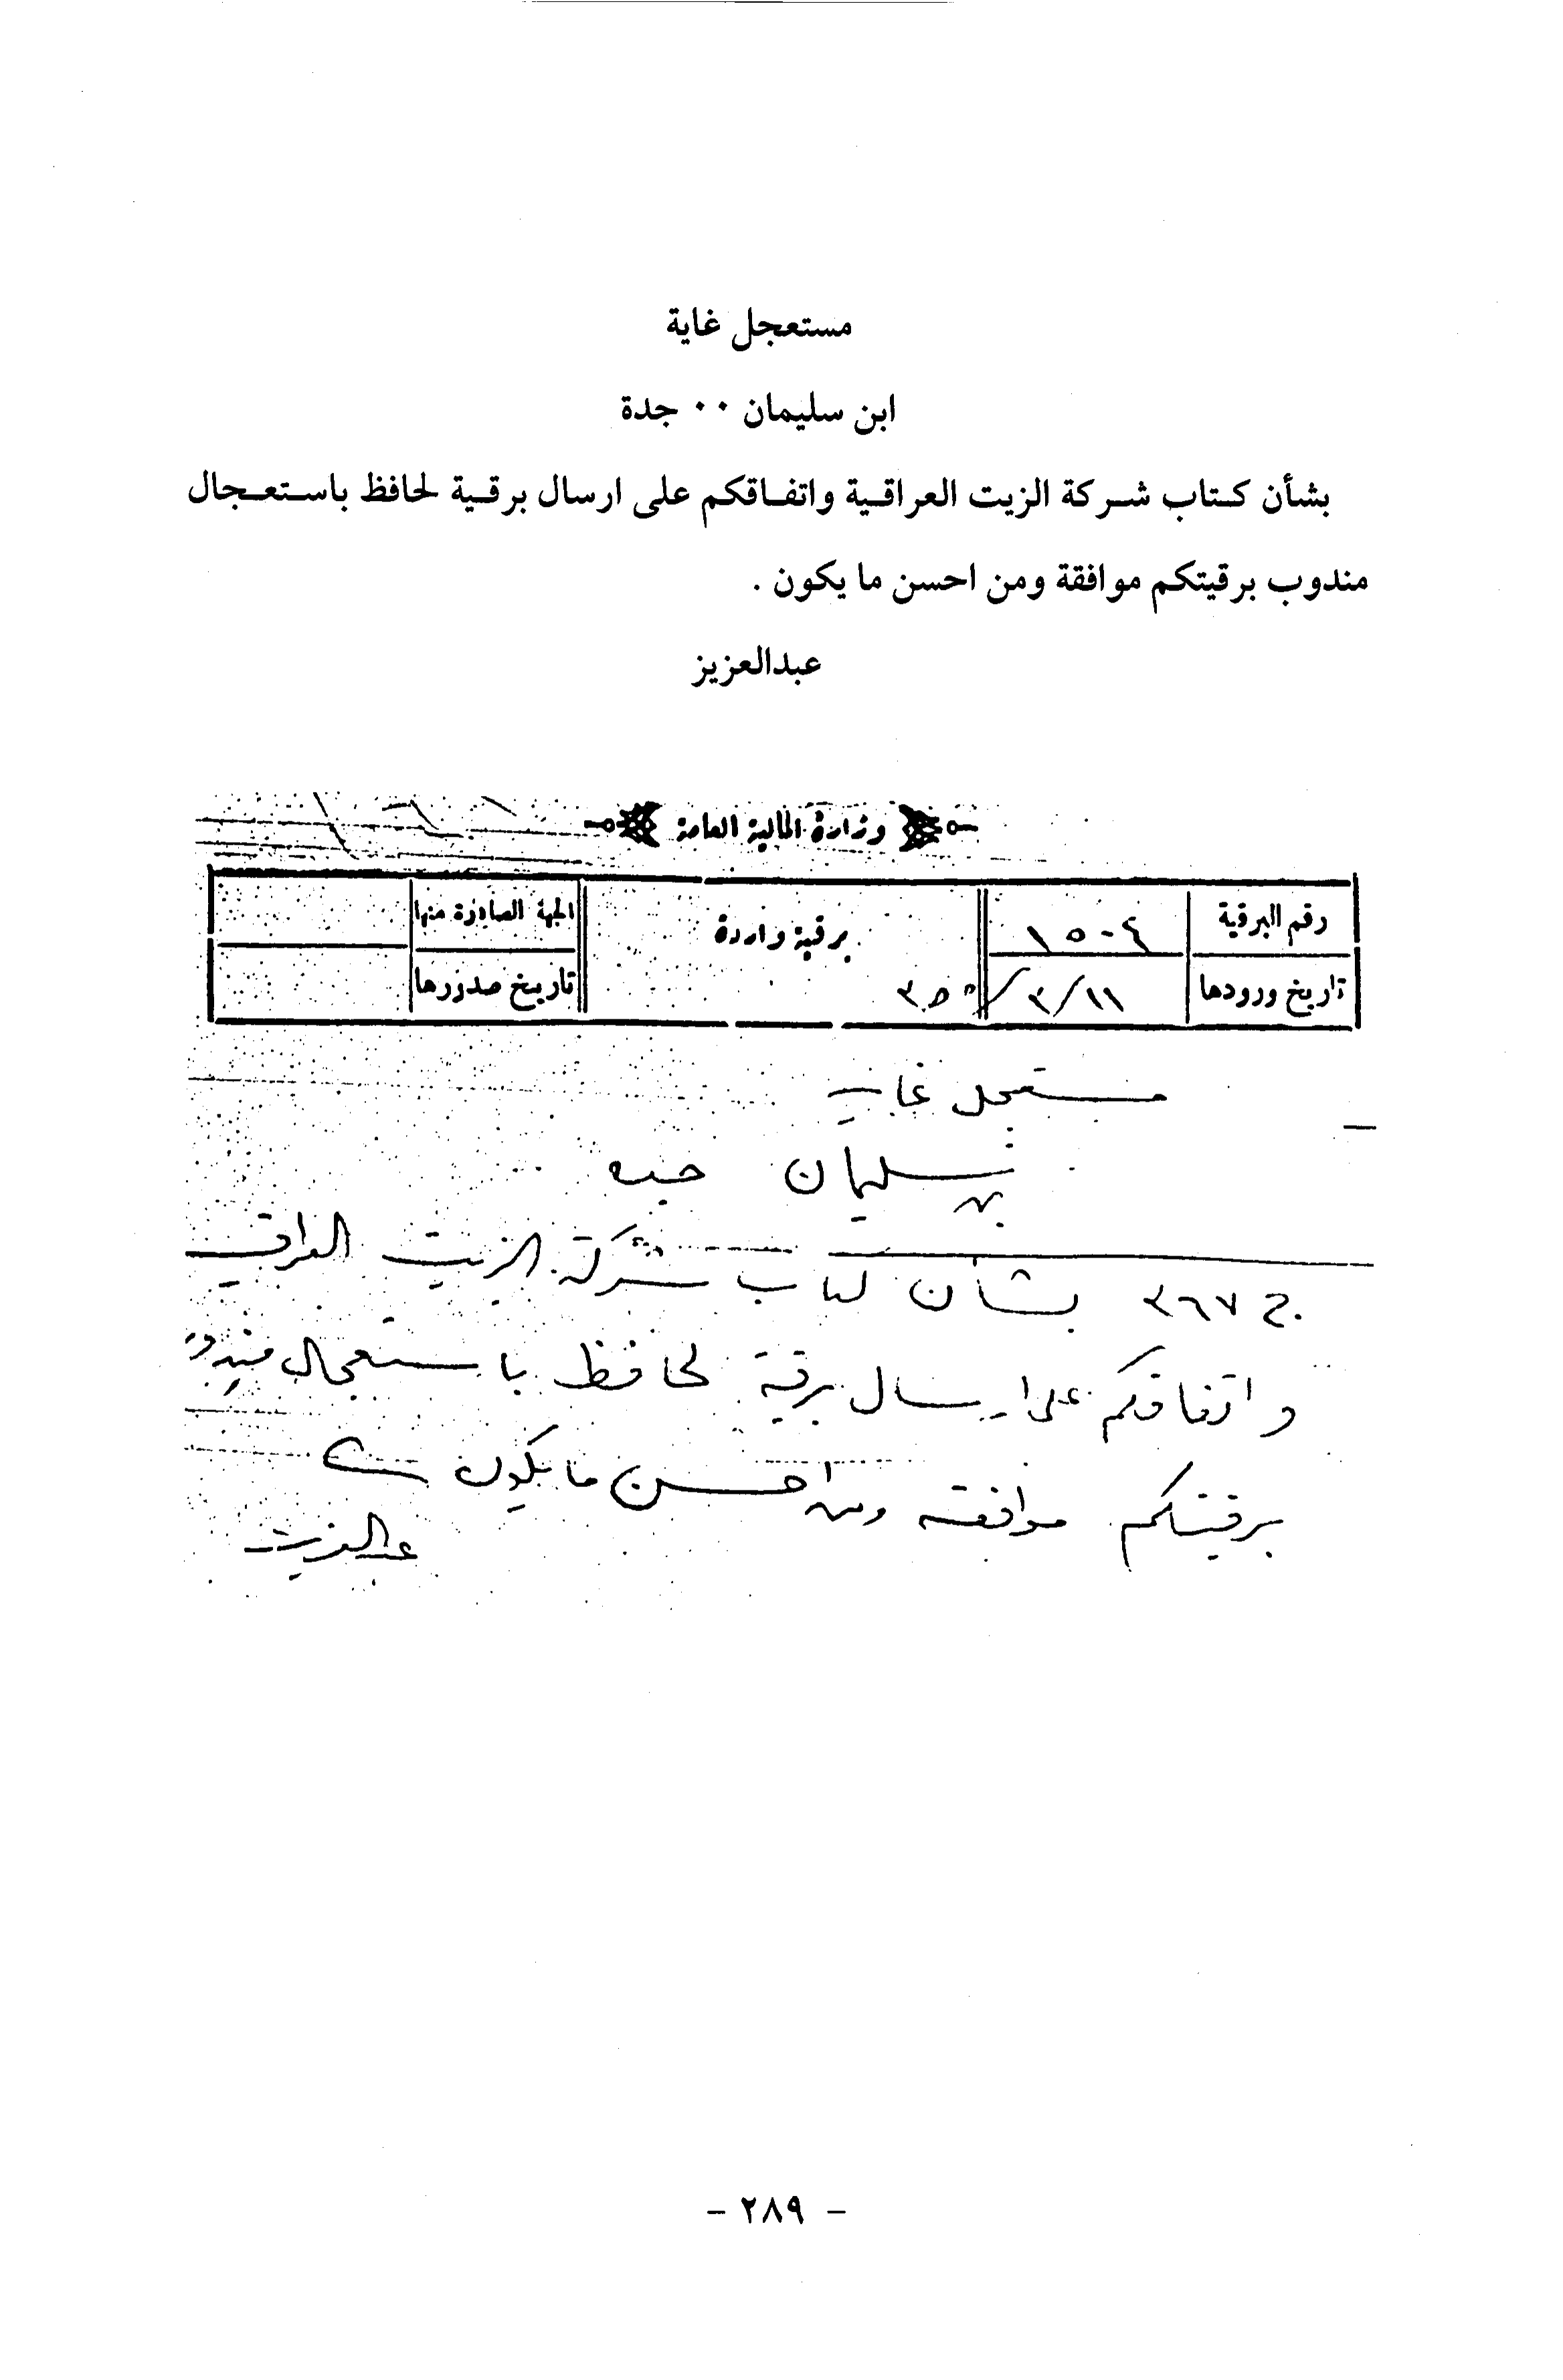 مستعجل غاية
ابن سليمان ٠٠ جدة
بشأن كتاب شركة الزيت العراقية واتفاقكم على ارسال برقية لحافظ باستعجال
مندوب برقيتكم موافقة ومن احسن ما يكون .
عبدالعزيز
وزارة المالية العامة
رقم البرقية ١٥٠٤ برقية واردة الجهة الصادرة منها
تاريخ ورودها ١١/٣/ تاريخ صدورها
مستعجل غاية
بن سليمان جده
ج ٣٦٧ بشأن كتاب شركة الزيت العراقية
واتفاقكم على ارسال برقية لحافظ باستعجال مندوب
برقيتكم موافقه ومن احسن ما يكون
عبدالعزيز
- ٢٨٩ -